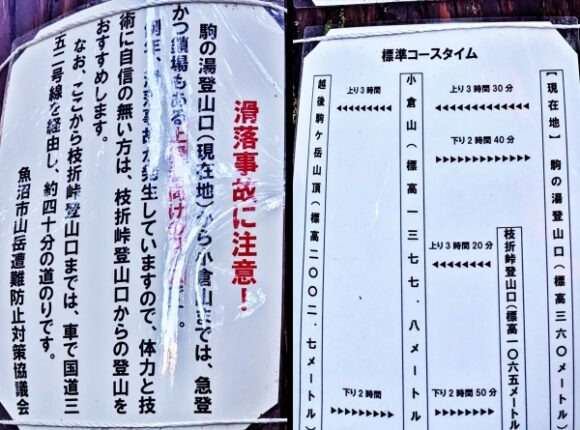 滑落事故に注意！
駒の湯登山口（現在地）から小倉山までは、急登
かつ鎖場もある上
例年、滑落事故が発生していますので、体力と技
術に自信の無い方は、枝折峠登山口からの登山を
おすすめします。
なお、ここから枝折峠登山口までは、車で国道三
五二号線を経由し、約四十分の道のりです。
魚沼市山岳遭難防止対策協議会
標準コースタイム
【現在地】 駒の湯登山口（標高三六〇メートル）
上り３時間 30 分
下り２時間 40 分
枝折峠登山口（標高一〇六五メートル
上り３時間 20 分
下り２時間 50 分
小倉山（標高一三七七．八メートル）
上り３時間
下り２時間
越後駒ケ岳山頂（標高二〇〇二．七メートル）